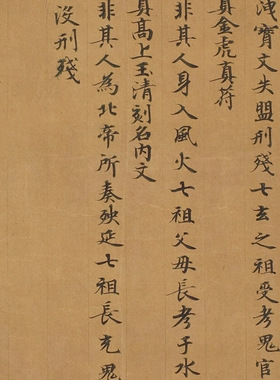 洩寳文失盟刑殘七玄之祖受考鬼官
真金虎真符
非其人身入風火七祖父母長考于水
真髙上玉清刻名内文
非其人為北帝所奏殃延七祖長充鬼
没刑殘